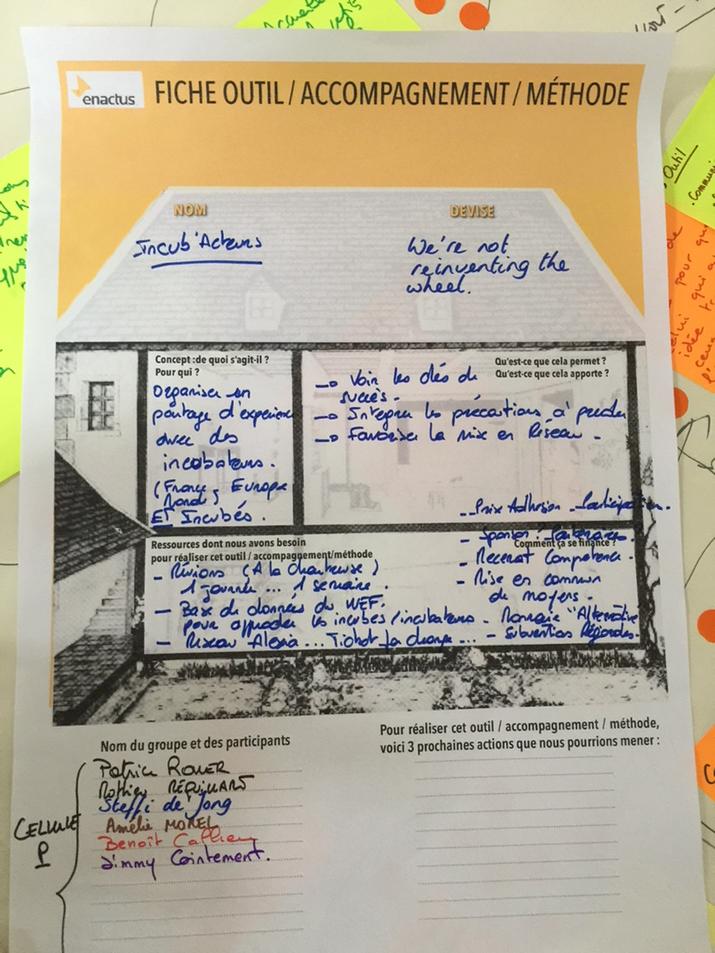 enactus
FICHE OUTIL / ACCOMPAGNEMENT / MÉTHODE
NOM
DEVISE
Incub'Acteurs
We're not
reinventing the
wheel.
Concept : de quoi s'agit-il ?
Pour qui ?
Organiser un
partage d'experience
avec des
incubateurs.
(France, Europe
Nord,
ET Incubés.
Qu'est-ce que cela permet ?
Qu'est-ce que cela apporte ?
Voir les clés du
succès.
Intégrer les précautions à prendre
Favoriser la mise en Réseau -
Ressources dont nous avons besoin
pour réaliser cet outil / accompagnement/méthode
- Réunions (A la chartreuse)
1 journée ... 1 semaine.
- Base de données du WEF.
pour approcher les incubés/incubateurs.
- Réseau Alexia ...
Comment ça se finance ?
- Prix Adhésion - Participation.
- Sponsor : Partenaires
- Mecenat Competence -
- Mise en commun
de moyens.
- Monnaie "Alternative
- Subventions Régionales.
Nom du groupe et des participants
Patrice
Steffi de Jong
Amélie MOREL
Benoît
Jimmy Cointement.
CELLULE
P
Pour réaliser cet outil / accompagnement / méthode,
voici 3 prochaines actions que nous pourrions mener :
Outil